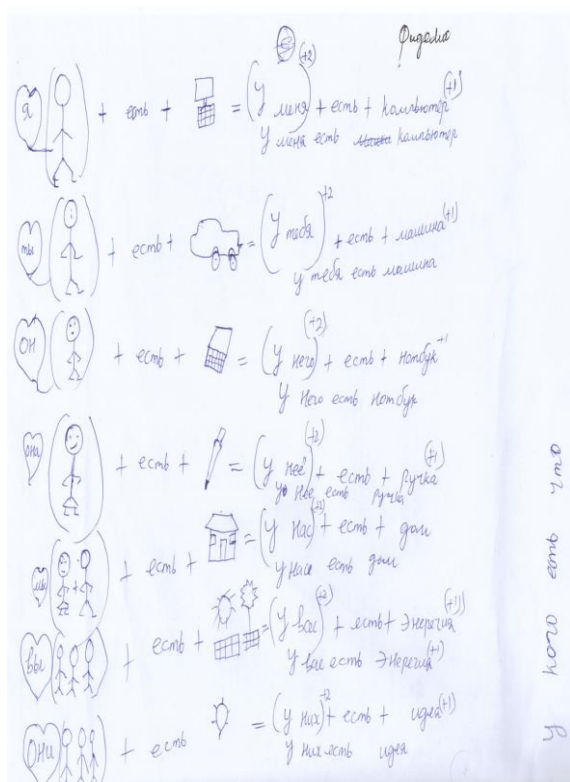 (+2)
я + есть + = (У меня) + есть + компьютер (+1)
У меня есть компьютер
ты + есть + = (У тебя) +2 + есть + машина (+1)
У тебя есть машина
он + есть + = (У него) (+2) + есть + нотбук +1
У него есть нотбук
она + есть + = (У неё) (+2) + есть + ручка (+1)
У Нее есть ручка
мы + есть + = (У нас) + есть + дом
У нас есть дом
вы + есть + = (У вас) +2 + есть + Энерегия (+1)
У вас есть Энерегия (+1)
Они + есть = (У них) +2 + есть + идея (+1)
У них есть идея
У кого есть что